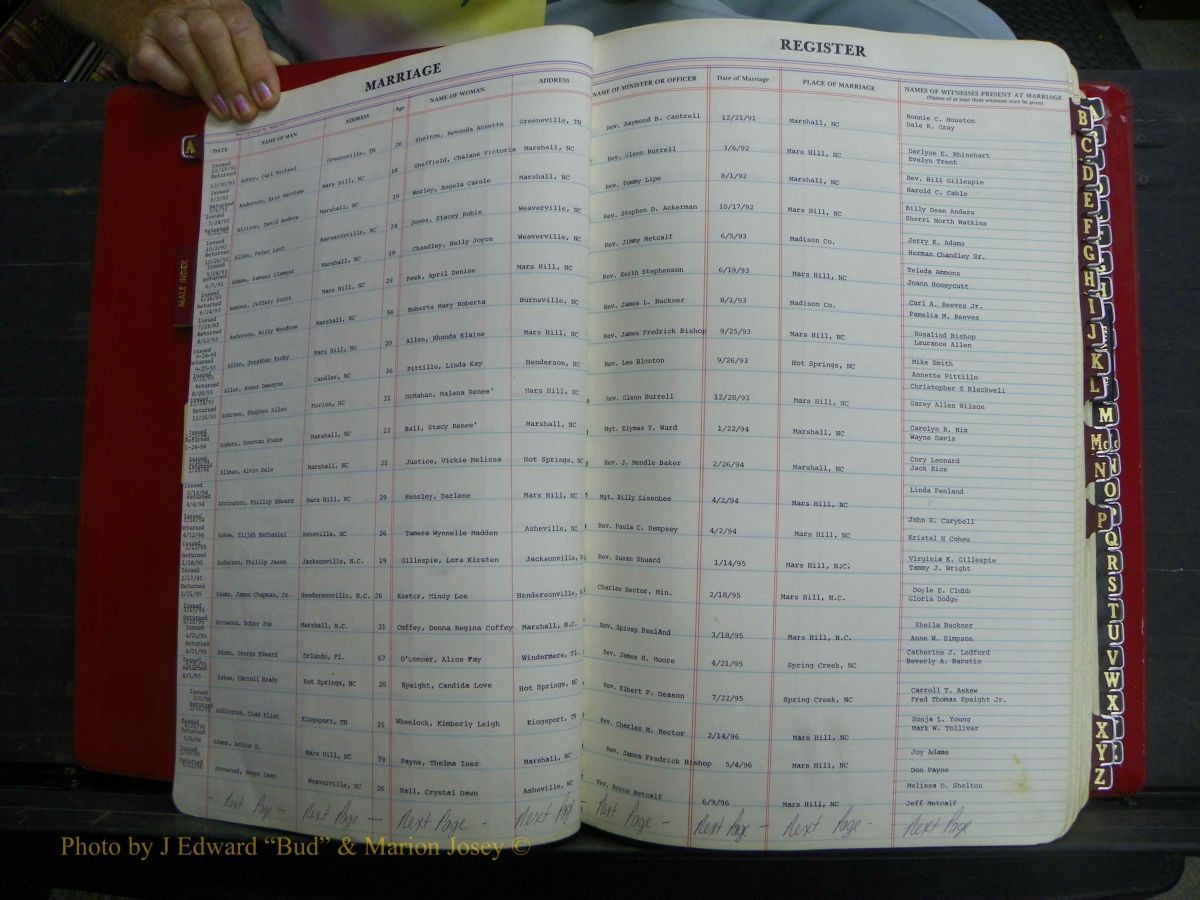 MARRIAGE
REGISTER
DATE NAME OF MAN ADDRESS Age NAME OF WOMAN ADDRESS NAME OF MINISTER OR OFFICER Date of Marriage PLACE OF MARRIAGE NAMES OF WITNESSES PRESENT AT MARRIAGE
(Names of at least three witnesses must be given)
Ashby, Carl Michael Greeneville, TN 26 Shelton, Revonda Annette Greeneville, TN Rev. Raymond B. Cantrell 12/21/91 Marshall, NC Ronnie C. Houston
Dale R. Gray
Anderson, Eric Matthew Mars Hill, NC 18 Sheffield, Chalane Victoria Marshall, NC Rev. Glenn Burrell 3/6/92 Mars Hill, NC Darlyne E. Rhinehart
Evelyn Trent
Allison, David Andrew Marshall, NC 19 Worley, Angela Carole Marshall, NC Rev. Tommy Lipe 8/1/92 Marshall, NC Rev. Bill Gillespie
Harold C. Cable
Allen, Peter Latt Barnardsville, NC 24 Jones, Stacey Robin Weaverville, NC Rev. Stephen D. Ackerman 10/17/92 Mars Hill, NC Billy Dean Anders
Sherri North Watkins
Adams, Samuel Clement Marshall, NC 19 Chandley, Holly Joyce Weaverville, NC Rev. Jimmy Metcalf 6/5/93 Madison Co. Jerry K. Adams
Herman Chandley Sr.
Ammons, Jeffery Scott Mars Hill, NC 29 Peek, April Denise Mars Hill, NC Rev. Keith Stephenson 6/19/93 Mars Hill, NC Teleda Ammons
Joann Honeycutt
Anderson, Billy Woodrow Marshall, NC 56 Roberts Mary Roberta Burnsville, NC Rev. James L. Buckner 8/1/93 Madison Co. Carl A. Reeves Jr.
Pamelia M. Reeves
Allen, Jonathan Ricky Mars Hill, NC 20 Allen, Rhonda Elaine Mars Hill, NC Rev. James Fredrick Bishop 9/25/93 Mars Hill, NC Rosalind Bishop
Laurance Allen
Allen, Roger Dewayne Candler, NC 36 Pittillo, Linda Kay Henderson, NC Rev. Lee Blonton 9/26/93 Hot Springs, NC Mike Smith
Annette Pittillo
Andrews, Stephen Allen Marion, NC 21 McMahan, Malena Renee' Mars Hill, NC Rev. Glenn Burrell 12/28/93 Mars Hill, NC Christopher S Blackwell
Garey Allen Wilson
Anders, Donovan Shane Marshall, NC 22 Ball, Stacy Renee' Marshall, NC Mgt. Elymas Y. Ward 1/22/94 Marshall, NC Carolyn B. Nix
Wayne Davis
Allman, Alvin Dale Marshall, NC 25 Justice, Vickie Melissa Hot Springs, NC Rev. J. Mendle Baker 2/26/94 Marshall, NC Cory Leonard
Jack Rice
Arrington, Phillip Edward Mars Hill, NC 29 Hensley, Darlene Mars Hill, NC Mgt. Billy Lisenbee 4/2/94 Mars Hill, NC Linda Penland
Askew, Elijah Nathaniel Asheville, NC 26 Tamera Wynnelle Madden Asheville, NC Rev. Paula C. Dempsey 4/2/94 Mars Hill, NC John H. Carybell
Kristal H Coheu
Anderson, Phillip Jason Jacksonville, N.C. 19 Gillespie, Lora Kirsten Jacksonville, N. Rev. Susan Shuard 1/14/95 Mars Hill, N.C. Virginia K. Gillespie
Tammy J. Wright
Adams, James Chapman, Jr. Hendersonville, N.C. 26 Ksetor, Mindy Lee Hendersonville, N. Charles Rector, Min. 2/18/95 Mars Hill, N.C. Doyle E. Clubb
Gloria Dodge
Arrowood, Bobby Joe Marshall, N.C. 21 Coffey, Donna Regina Coffey Marshall, N.C. Rev. Spivey PenlAnd 3/18/95 Mars Hill, N.C. Sheila Buckner
Anne W. Simpson
Adams, George Edward Orlando, Fl. 67 O'Conner, Alice Fay Windermere, Fl. Rev. James H. Moore 4/21/95 Spring Creek, NC Catherine J. Ledford
Beverly A. Barutio
Askew, Carroll Brady Hot Springs, NC 20 Speight, Candida Love Hot Springs, NC Rev. Elbert P. Deason 7/22/95 Spring Creek, NC Carroll T. Askew
Fred Thomas Speight Jr.
Addington, Chad Eliot Kingsport, TN 25 Wheelock, Kimberly Leigh Kingsport, TN Rev. Charles M. Rector 2/14/96 Mars Hill, NC Sonja L. Young
Mark W. Tolliver
Adams, Arthur E. Mars Hill, NC 79 Payne, Thelma Inez Marshall, NC Rev. James Fredrick Bishop 5/4/96 Mars Hill, NC Joy Adams
Don Payne
Arrowood, Roger Dean Weaverville, NC 26 Hall, Crystal Dawn Asheville, NC Rev. Royce Metcalf 6/9/96 Mars Hill, NC Melissa D. Shelton
Jeff Metcalf
Next Page - Next Page - Next Page - Next Page Next Page - Next Page - Next Page - Next Page
MALE INDEX
A
B
C
D
E
F
G
H
I
J
K
L
M
Mc
N
O
P
Q
R
S
T
U
V
W
X
Y
Z
Photo by J Edward “Bud” & Marion Josey ©